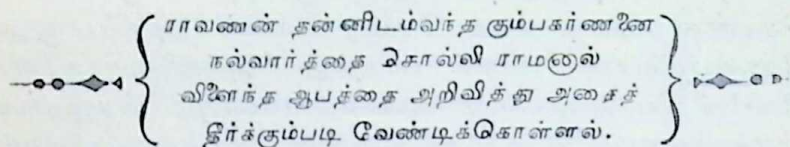 ராவணன் தன்னிடம்வந்த கும்பகர்ணனை
நல்வார்த்தை சொல்லி ராமனால்
விளைந்த ஆபத்தை அறிவித்து அசைத்
தீர்க்கும்படி வேண்டிக்கொள்ளல்.